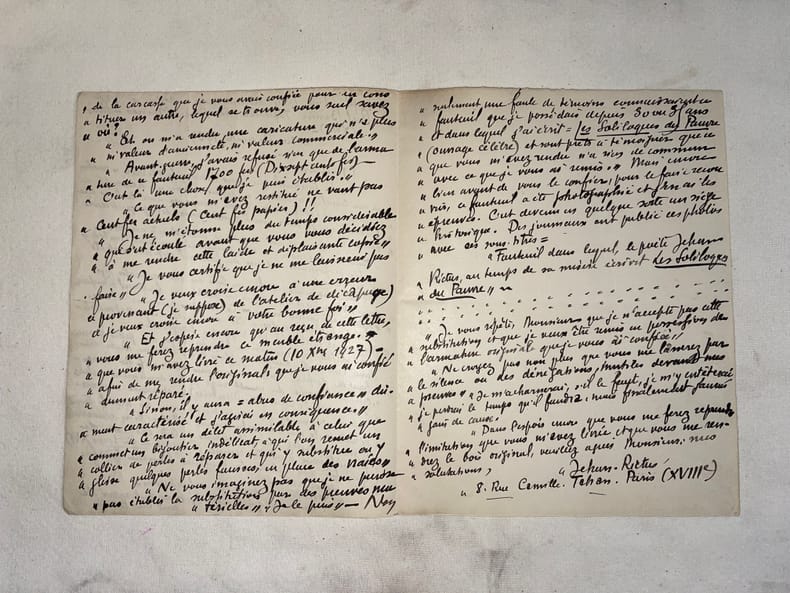 " de la carcasse que je vous avais confiée pour en cons
" tituer un autre, lequel se trouve, vous seul savez
" où?
" Et on m'a rendu une caricature qui n'a plus
" ni valeur d'ancienneté, ni valeur commerciale."
" Avant-guerre j'avais refusé rien que de l'arma
" ture de ce fauteuil 1700 frs (Dix sept cents frs) —
" C'est là une chose que je puis établir."
" Ce que vous m'avez restitué ne vaut pas
" Cent frs actuels (Cent frs papier) !!
" Je ne m'étonne plus du temps considérable
" qui s'est écoulé avant que vous vous décidiez
" à me rendre cette laide et déplaisante copie"
" Je vous certifie que je ne me laisserai pas
faire"
" Je veux croire encore à une erreur
" provenant (je suppose) de l'atelier de décapage)
" et je veux croire encore à votre bonne foi"
" Et j'espère encore qu'au reçu de cette lettre,
" vous me ferez reprendre ce meuble étrange
" que vous m'avez livré ce matin (10 Xbre 1927) —
" afin de me rendre l'original que je vous ai confié
" dûment réparé.
" Sinon, il y aura = abus de confiance = dû-
" ment caractérisé et j'agirai en conséquence."
" Ce sera un délit assimilable à celui que
" commet un bijoutier indélicat à qui l'on remet un
" collier de perles à réparer et qui y substitue ou y
" glisse quelques perles fausses, en place des vraies"
" Ne vous imaginez pas que je ne puisse
" pas établir la substitution par des preuves ma
" térielles". Je le puis" — Non
" seulement une foule de témoins connaissaient ce
" fauteuil que je possédais depuis 30 ou 35 ans
" et dans lequel j'ai écrit = Les Soliloques du Pauvre
" (ouvrage célèbre) et sont prêts à témoigner que ce
" que vous m'avez rendu n'a rien de commun
" avec ce que je vous ai remis" Mais encore
" bien avant de vous le confier, pour le faire recou
" vrir, ce fauteuil a été photographié et j'en ai les
" épreuves. C'est devenu en quelque sorte un siège
" historique. Des journaux ont publié ces photos
" avec ces sous-titres =
" "Fauteuil dans lequel, le poète Jehan-
" Rictus, au temps de sa misère écrivit Les Soliloques
" du Pauvre" "
" Je vous répète, Monsieur que je n'accepte pas cette
" substitution et que je veux être remis en possession de
" l'armature originale que je vous ai confiée"
" Ne croyez pas non plus que vous me lasserez par
" le silence ou des dénégations, inutiles devant mes
" preuves" Je m'acharnerai, s'il le faut, je m'y entêterai
" je perdrai le temps qu'il faudra, mais finalement j'aurai
" gain de cause.
" Dans l'espoir encore que vous me ferez reprendre
" l'imitation que vous m'avez livrée et que vous me ren-
" drez le bois original, veuillez agréer Monsieur, mes
" salutations,
" Jehan-Rictus
" 8. Rue Camille-Tahan. Paris (XVIIIe)